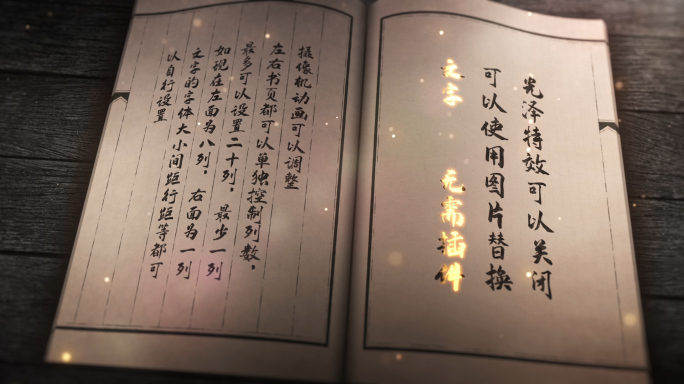 光泽特效可以关闭
可以使用图片替换
文字 无需插件
摄像机动画可以调整
左右书页都可以单独控制列数，
最多可以设置二十列， 最少一列
如现在左面为八列， 右面为一列
文字的字体大小间距行距等都可
以自行设置